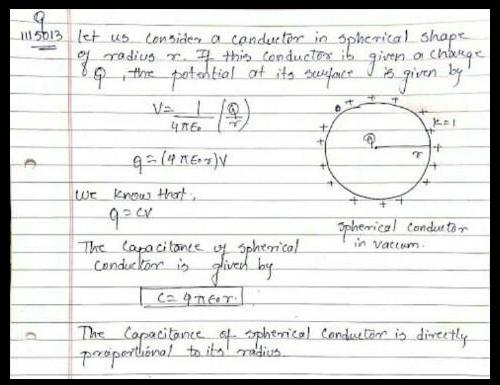 Q
1115013
let us consider a conductor in spherical shape
of radius r. If this conductor is given a charge
Q, the potential at its surface is given by
V = 1/4πε₀ (Q/r)
q = (4πε₀r)V
K=1
Q
r
We know that,
q = CV
Spherical conductor
in vaccum.
The Capacitance of spherical
Conductor is given by
C = 4πε₀r.
The Capacitance of spherical Conductor is directly
proportional to its radius.